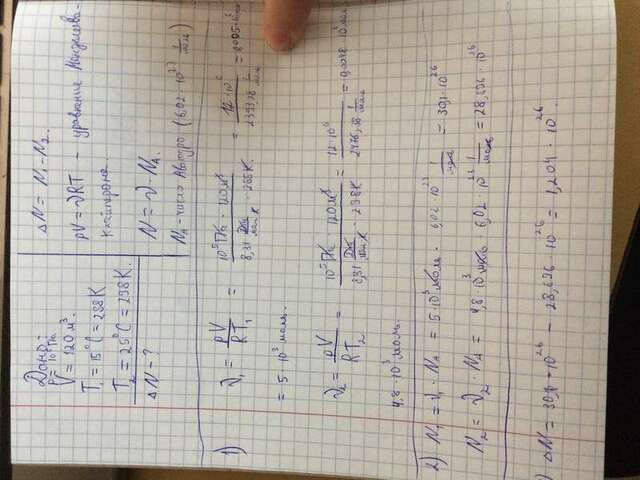 Дано:
p = 10⁵ Па.
V = 120 м³.
T₁ = 15°C = 288 K
T₂ = 25°C = 298 K.
ΔN - ?
ΔN = N₁ - N₂.
pV = νRT - уравнение Менделеева-
Клапейрона.
N = ν · N_A.
N_A - число Авогадро (6,02 · 10²³ 1/моль)
1) ν₁ = pV / RT₁ = 10⁵ Па · 120 м³ / 8,31 Дж/моль·K · 288 K = 12 · 10⁶ / 2393,28 1/моль =
= 5 · 10³ моль.
ν₂ = pV / RT₂ = 10⁵ Па · 120 м³ / 8,31 Дж/моль·K · 298 K = 12 · 10⁶ / 2476,38 1/моль = 0,0048 · 10⁶ моль
4,8 · 10³ моль.
2) N₁ = ν₁ · N_A = 5 · 10³ моль · 6,02 · 10²³ 1/моль = 30,1 · 10²⁶
N₂ = ν₂ · N_A = 4,8 · 10³ моль · 6,02 · 10²³ 1/моль = 28,896 · 10²⁶
) ΔN = 30,1 · 10²⁶ - 28,896 · 10²⁶ = 1,204 · 10²⁶.